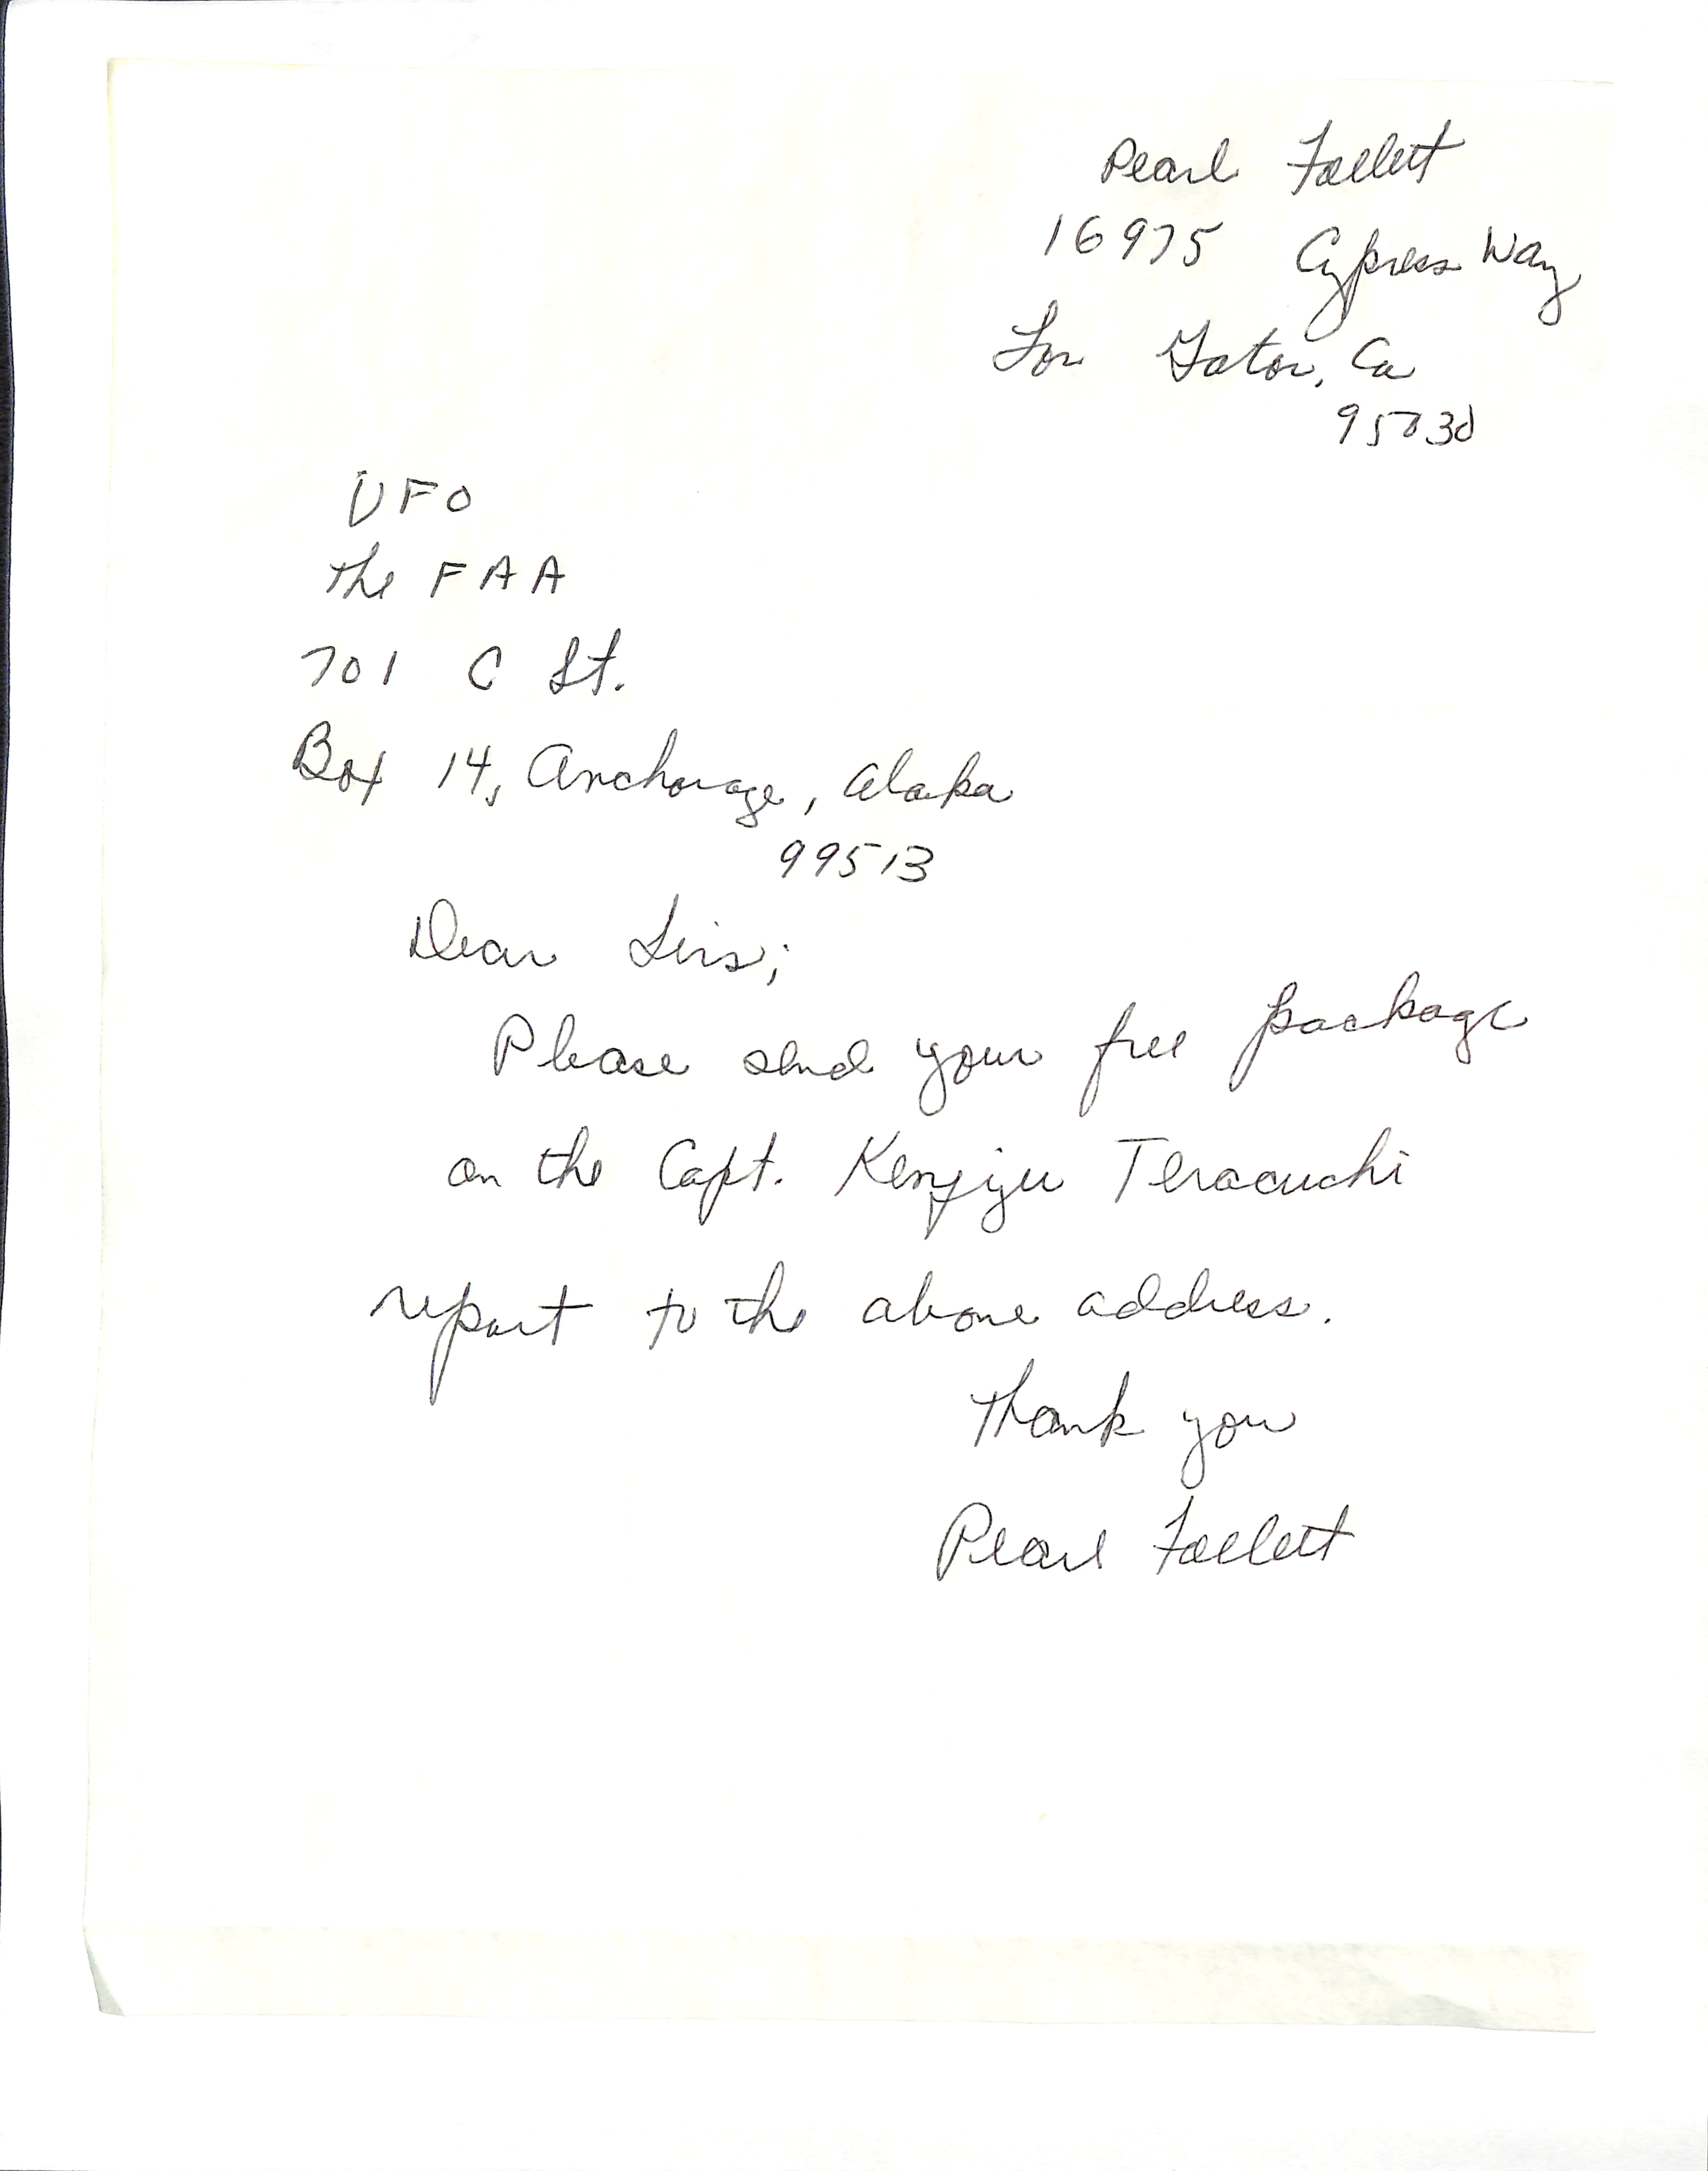 Pearl Follett
16975 Cypress Way
Los Gatos, Ca
95030
UFO
The FAA
701 C St.
Box 14, Anchorage, Alaska
99513
Dear Sirs;
Please send your free package
on the Capt. Kenjyu Teraouchi
report to the above address.
Thank you
Pearl Follett